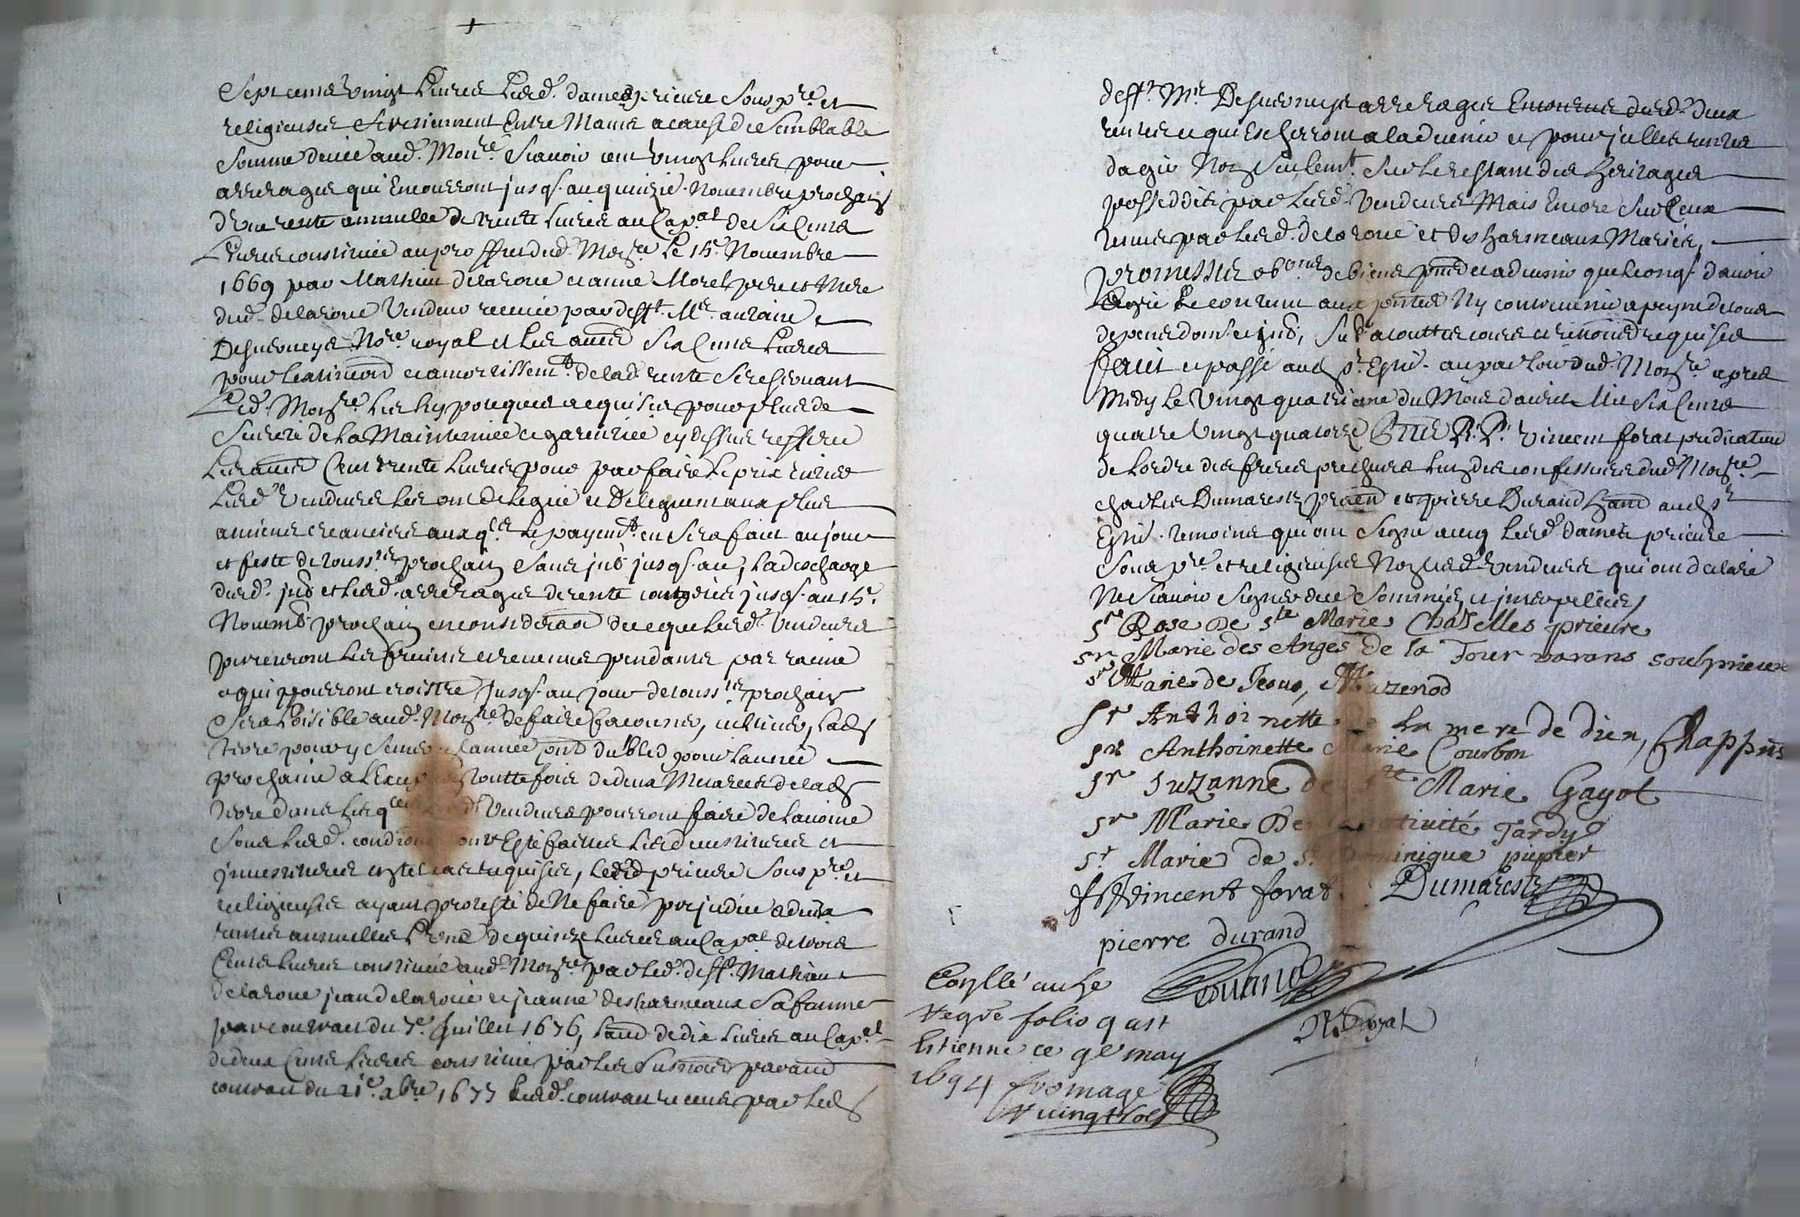 Sept cents vingt Livres Lesd. dames prieure Sous pre. et
religieuses retiennent Entre Mains a cause de Semblable
Somme deüe aud. Monre. Scavoir cent vingt Livres pour
arrerages qui Encourront jusq. au quinzie. Novembre prochain
d'une rente annuelle de trente Livres au Capal. de Six Cents
Livres constituée au proffit dud. Monre. Le 15e. Novembre
1669 par Mathieu delaroue et anne Morel pere et Mere
dud. delaroue Vendeur receüe par defft. Me. antoine
Desverneys Nore. royal et Les autres Six Cents Livres
pour et amortissemt. de lad. rente Se reservant
Led. Monre. Les hypoteques acquises pour plus de
Seureté de La Maintenüe et garentie cy dessus
Les autres Cent trente Livres pour parfaire Le prix
Lesd. Vendeurs Les ont delegué et Deleguent aux plus
anciens creanciers auxq.ls Le payemt. en Sera fait au jour
et feste de touss.ts prochain Sans jusq. au, La descharge
dud. et Lesd. arrerages de rente jusq. au 15e.
Novemb. prochain en consideraon de ce que Lesd. Vendeurs
prendront Les fruits et revenus pendants par racine
et qui pourront croistre jusq. au jour de touss.ts prochain
Sera Loisible aud. Monre. de faire faconner, cultiver, Lad.
terre pour y Semer L'année du bled pour L'année
prochaine a L'exception touttefois de deux de lad.
terre dans Lesq.les Lesd. Vendeurs pourront faire de Lavoine
Sous Lesd. conditions ont Esté faittes Lesd. et
investitures en tel cas requises, Lesd. prieure Sous pre. et
religieuses ayant protesté de Ne faire prejudice a deux
rentes annuelles L'une de quinze Livres au Capal. de trois
Cents Livres constituée aud. Monre. par Led. deff. Mathieu
delaroue jean delaroue et jeanne descharmeaux Sa femme
par contrat du 7e. Juillet 1676, Laud. de dix Livres au Capal.
de deux Cents Livres constitué par Les Susnomés par autre
contrat du 21e. xbre. 1677 Lesd. contrats receus par Led.
defft. Me. Desverneys et arrerages Encourus desd. deux
rentes et qui Escherront a Ladvenir et pour jcelles rentes
dagir Non Seulemt. Sur Le restant des heritages
possedés par Lesd. Vendeurs Mais Encore Sur Ceux
tenus par Lesd. delaroue et descharmeaux Mariés,
promesses obons. de biens pnts et advenir
Le contenu aux Ny contrevenir a peyne de tous
depens doms. et jnts, a touttes cours et requises
Fait et passé aud. St. Esne. au parloir dud. Monre. apres
Midy Le Vingt quatrieme du Mois davril Mil Six Cents
quatre Vingt quatorze R. P. Vincent forat predicateur
de Lordre des freres precheurs Lun des confesseurs dud. Monre.
charles Dumarestz et pierre Durand aud. St.
Esne. temoins qui ont Signé avec Lesd. dames prieure
Sous pre. et religieuses Non Lesd. Vendeurs qui ont declaré
Ne Scavoir Signer de ce Sommés, et jnterpellés
Sr Rose De Ste Marie Chatelles prieure
sr Marie des Anges de la Tour varans soubprieure
sr Marie de Jesus, Mazenod
Sr Anthoinette de la mere de dieu, Chappuis
sr Anthoinette Marie Courbon
Sr Suzanne de Ste Marie Gayot
Sr Marie De la Nativité Tardy
Sr Marie de St Dominique pupier
fr Vincent forat Dumarestz
pierre durand
Conllé au
folio
Estienne ce 9e may
1694 fromage
vingt sols